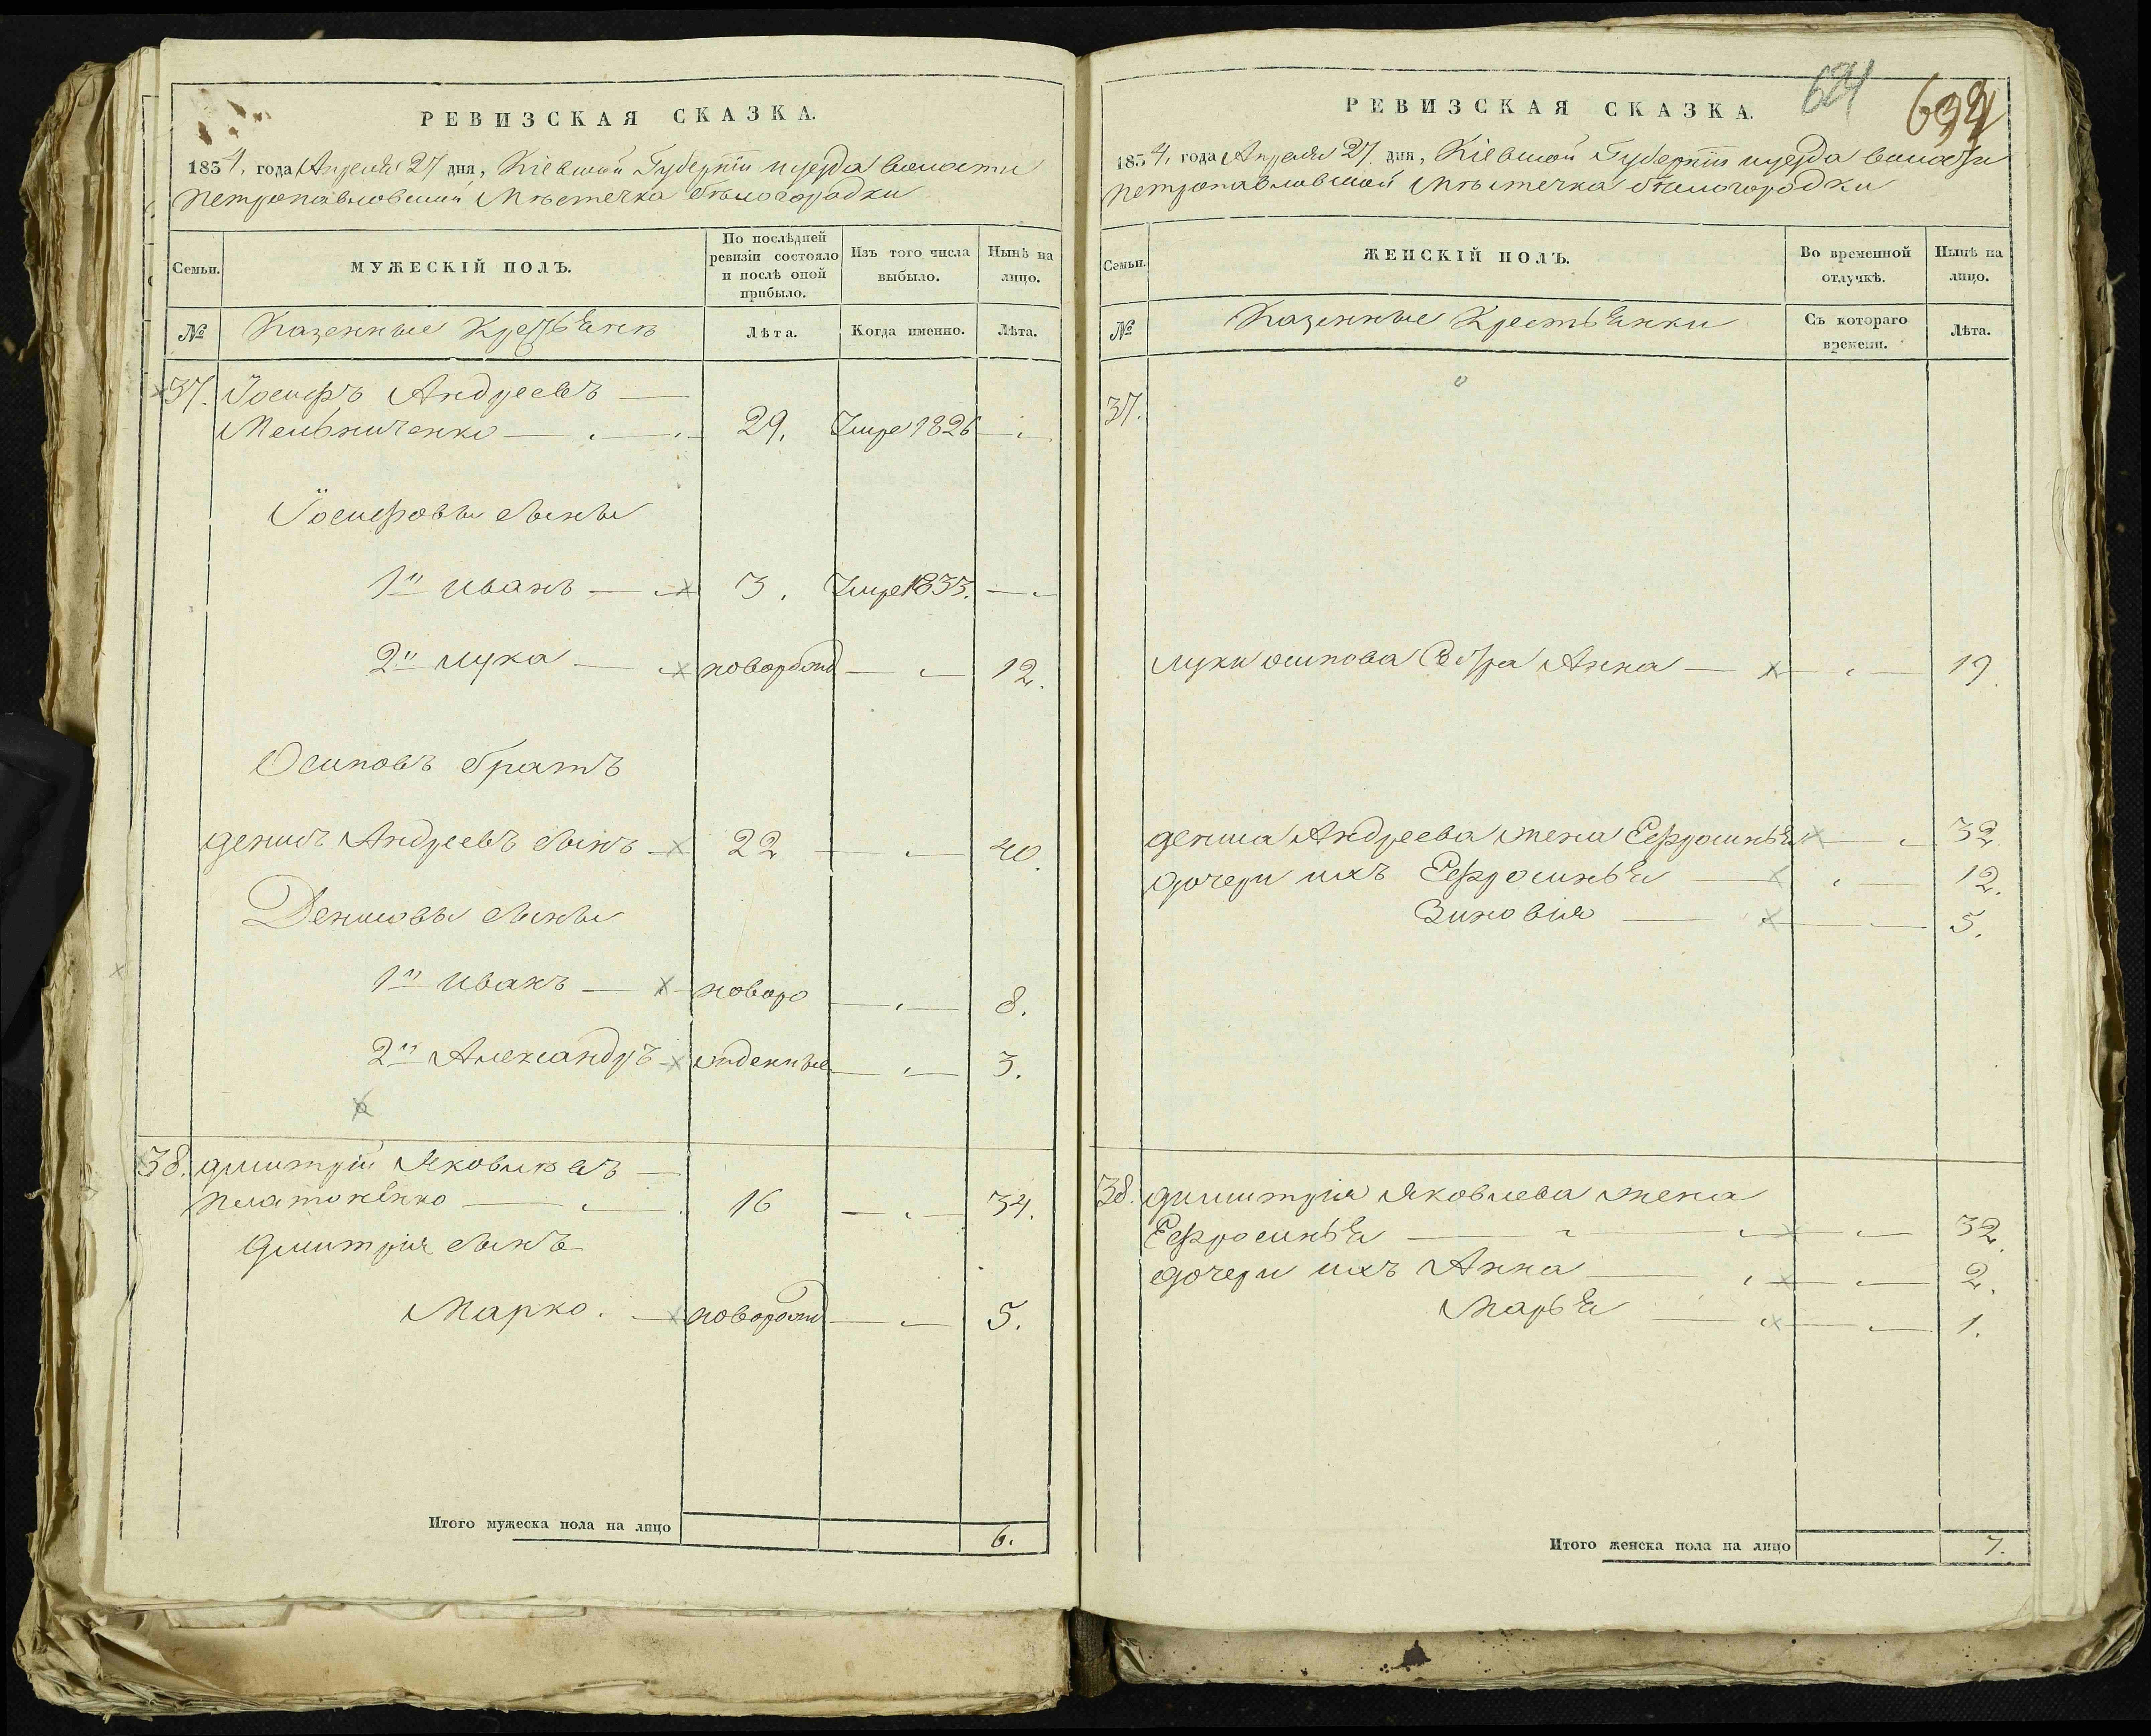 РЕВИЗСКАЯ СКАЗКА.
1834, года Апреля 27 дня, Кіевской Губерніи уезда волости
петропавловской Мѣстечка бѣлогородки
Семьи.
МУЖЕСКІЙ ПОЛЪ.
По послѣдней ревизіи состояло и послѣ оной прибыло.
Изъ того числа выбыло.
Нынѣ на лицо.
№
Казенные Крестьяне
Лѣта.
Когда именно.
Лѣта.
37. Іосифъ Андреевъ
Мельниченко 29. Умре 1826
Іосифовы сыны
1й иванъ 3. Умре 1833.
2й лука новорожд 12.
Осиповъ братъ
денисъ Андреевъ сынъ 22 40.
Денисовы сыны
1й иванъ новоро 8.
2й Александръ жденные 3.
38. дмитрій Яковлевъ
платоненко 16 34.
дмитрія сынъ
Марко. новорожд 5.
Итого мужеска пола на лицо 6.
694
РЕВИЗСКАЯ СКАЗКА.
1834, года Апреля 27 дня, Кіевской Губерніи уезда волости
петропавловской Мѣстечка бѣлогородки
Семьи.
ЖЕНСКІЙ ПОЛЪ.
Во временной отлучкѣ.
Нынѣ на лицо.
№
Казенные Крестьянки
Съ котораго времени.
Лѣта.
37.
луки осипова Сестра Анна 19.
дениса Андреева жена Ефросинья 32.
дочери ихъ Ефросинья 12.
Зиновія 5.
38. дмитрія Яковлева жена
Ефросинья 32.
дочери ихъ Анна 2.
Марья 1.
Итого женска пола на лицо 7.